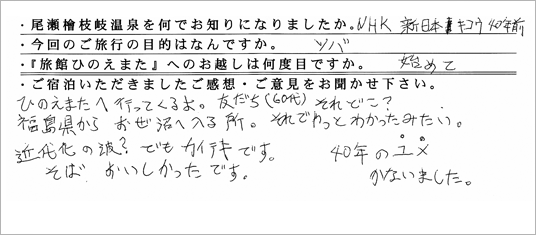 ・尾瀬檜枝岐温泉を何でお知りになりましたか。NHK 新日本キコウ 40年前
・今回のご旅行の目的はなんですか。 ソバ
・『旅館ひのえまた』へのお越しは何度目ですか。 始めて
・ご宿泊いただきましたご感想・ご意見をお聞かせ下さい。
ひのえまたへ行ってくるよ。友だち(60代) それどこ?
福島県から おぜ沼へ入る所。それでわっとわかったみたい。
近代化の波? でもカイテキです。
そば おいしかったです。
40年のユメ
かないました。